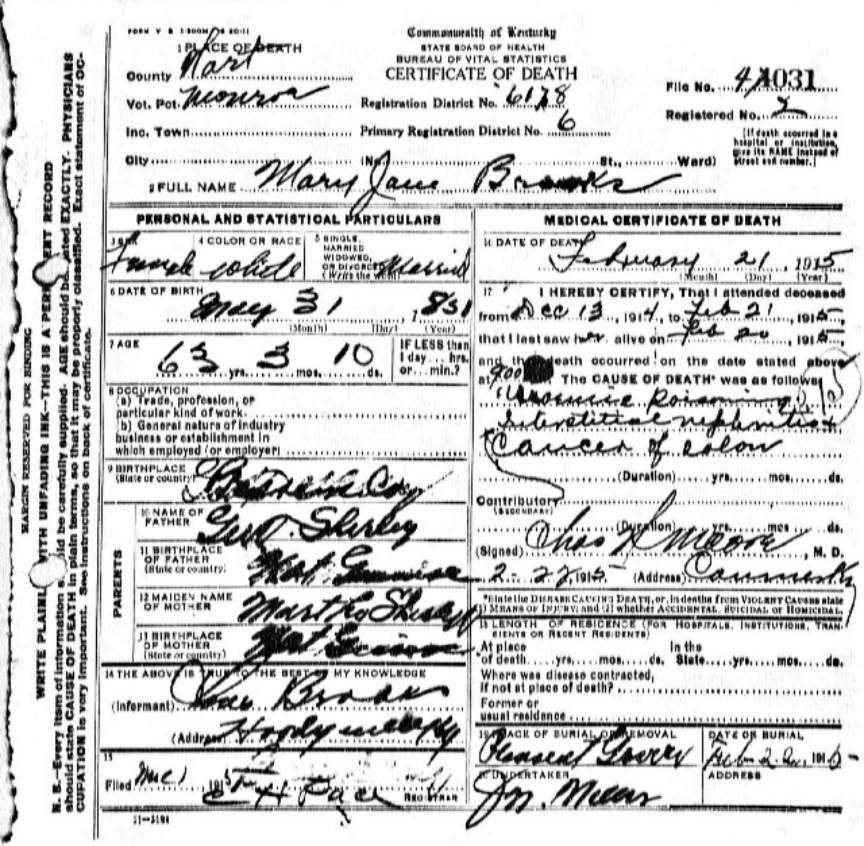 FORM V S 1-300M
Commonwealth of Kentucky
STATE BOARD OF HEALTH
BUREAU OF VITAL STATISTICS
CERTIFICATE OF DEATH
1 PLACE OF DEATH
County Hart
Vot. Pct. Monroe
Inc. Town
City (No. St., Ward)
Registration District No. 6178
Primary Registration District No. 6
File No. 4031
Registered No. 2
[If death occurred in a hospital or institution, give its NAME instead of street and number.]
2 FULL NAME Mary Jane Brooks
PERSONAL AND STATISTICAL PARTICULARS
3 SEX Female
4 COLOR OR RACE White
5 SINGLE, MARRIED WIDOWED, OR DIVORCED (Write the word) Married
6 DATE OF BIRTH May 31, 1831
(Month) (Day) (Year)
7 AGE 63 yrs. 3 mos. 10 ds.
IF LESS than 1 day ... hrs. or ... min.?
8 OCCUPATION
(a) Trade, profession, or particular kind of work
(b) General nature of industry business or establishment in which employed (or employer)
9 BIRTHPLACE (State or country)
PARENTS
10 NAME OF FATHER Geo. Shirley
11 BIRTHPLACE OF FATHER (State or country)
12 MAIDEN NAME OF MOTHER Martha
13 BIRTHPLACE OF MOTHER (State or country)
14 THE ABOVE IS TRUE TO THE BEST OF MY KNOWLEDGE
(Informant) Brooks
(Address)
15
Filed 1915
REGISTRAR
11-3184
MEDICAL CERTIFICATE OF DEATH
16 DATE OF DEATH February 21 1915
(Month) (Day) (Year)
17 I HEREBY CERTIFY, That I attended deceased
from Dec 13, 1914, to Feb 21, 1915,
that I last saw her alive on Feb 20, 1915,
and that death occurred on the date stated above
at 900 The CAUSE OF DEATH* was as follows
Uraemic Poisoning
Interstitial nephritis
Cancer of colon
(Duration) yrs. mos. ds.
Contributory (SECONDARY)
(Duration) yrs. mos. ds.
(Signed) Chas Moore, M. D.
2-27, 1915 (Address)
*State the DISEASE CAUSING DEATH, or, in deaths from VIOLENT CAUSES state
(1) MEANS OF INJURY; and (2) whether ACCIDENTAL, SUICIDAL or HOMICIDAL.
18 LENGTH OF RESIDENCE (FOR HOSPITALS, INSTITUTIONS, TRANSIENTS OR RECENT RESIDENTS)
At place of death yrs. mos. ds. In the State yrs. mos. ds.
Where was disease contracted, if not at place of death?
Former or usual residence
19 PLACE OF BURIAL OR REMOVAL
DATE OF BURIAL
Pleasant
Feb 1915
20 UNDERTAKER
ADDRESS
MARGIN RESERVED FOR BINDING
WRITE PLAINLY WITH UNFADING INK—THIS IS A PERMANENT RECORD
N. B.—Every item of information should be carefully supplied. AGE should be stated EXACTLY. PHYSICIANS
should state CAUSE OF DEATH in plain terms, so that it may be properly classified. Exact statement of OC-
CUPATION is very important. See instructions on back of certificate.